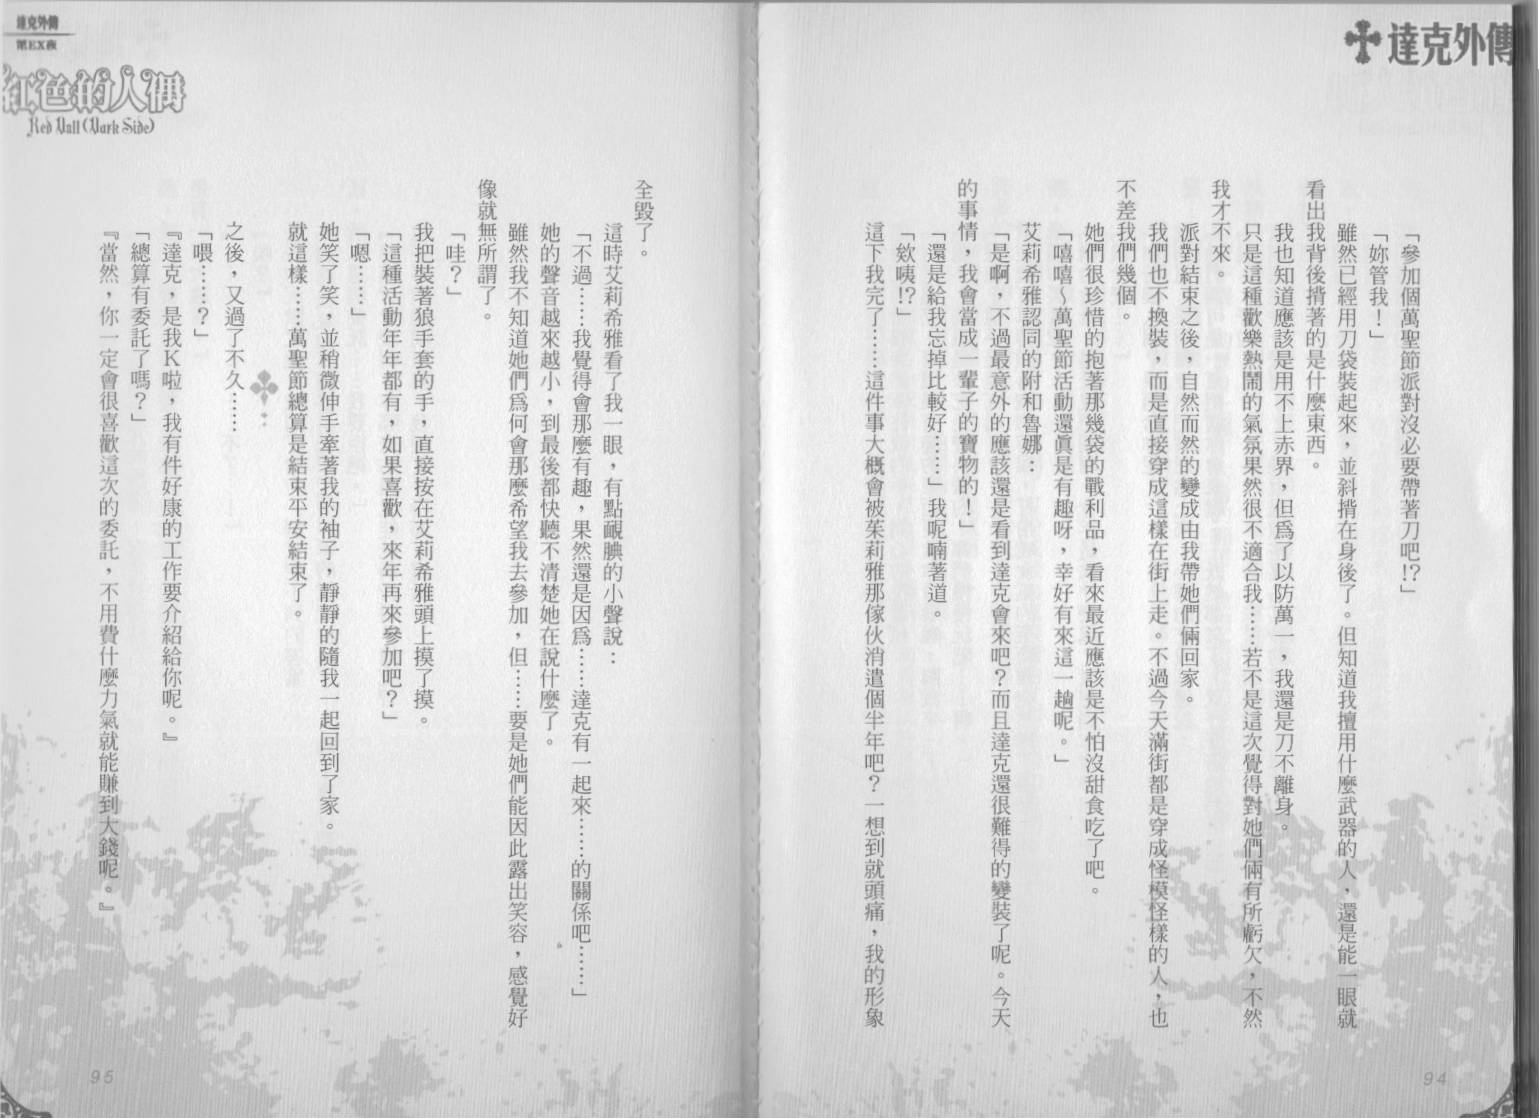 達克外傳
「參加個萬聖節派對沒必要帶著刀吧!?」
「妳管我！」
雖然已經用刀袋裝起來，並斜揹在身後了。但知道我擅用什麼武器的人，還是能一眼就
看出我背後揹著的是什麼東西。
我也知道應該是用不上赤界，但為了以防萬一，我還是刀不離身。
只是這種歡樂熱鬧的氣氛果然很不適合我……若不是這次覺得對她們倆有所虧欠，不然
我才不來。
派對結束之後，自然而然的變成由我帶她們倆回家。
我們也不換裝，而是直接穿成這樣在街上走。不過今天滿街都是穿成怪模怪樣的人，也
不差我們幾個。
她們很珍惜的抱著那幾袋的戰利品，看來最近應該是不怕沒甜食吃了吧。
「嘻嘻～萬聖節活動還真是有趣呀，幸好有來這一趟呢。」
艾莉希雅認同的附和魯娜：
「是啊，不過最意外的應該還是看到達克會來吧？而且達克還很難得的變裝了呢。今天
的事情，我會當成一輩子的寶物的！」
「還是給我忘掉比較好……」我呢喃著道。
「欸咦!?」
這下我完了……這件事大概會被茱莉雅那傢伙消遣個半年吧？一想到就頭痛，我的形象
94
達克外傳
第EX夜
紅色的人偶
Red Dall (Dark Side)
全毀了。
這時艾莉希雅看了我一眼，有點靦腆的小聲說：
「不過……我覺得會那麼有趣，果然還是因為……達克有一起來……的關係吧……」
她的聲音越來越小，到最後都快聽不清楚她在說什麼了。
雖然我不知道她們為何會那麼希望我去參加，但……要是她們能因此露出笑容，感覺好
像就無所謂了。
「哇？」
我把裝著狼手套的手，直接按在艾莉希雅頭上摸了摸。
「這種活動年年都有，如果喜歡，來年再來參加吧？」
「嗯……」
她笑了笑，並稍微伸手牽著我的袖子，靜靜的隨我一起回到了家。
就這樣……萬聖節總算是結束平安結束了。
之後，又過了不久……
「喂……？」
『達克，是我K啦，我有件好康的工作要介紹給你呢。』
「總算有委託了嗎？」
『當然，你一定會很喜歡這次的委託，不用費什麼力氣就能賺到大錢呢。』
95